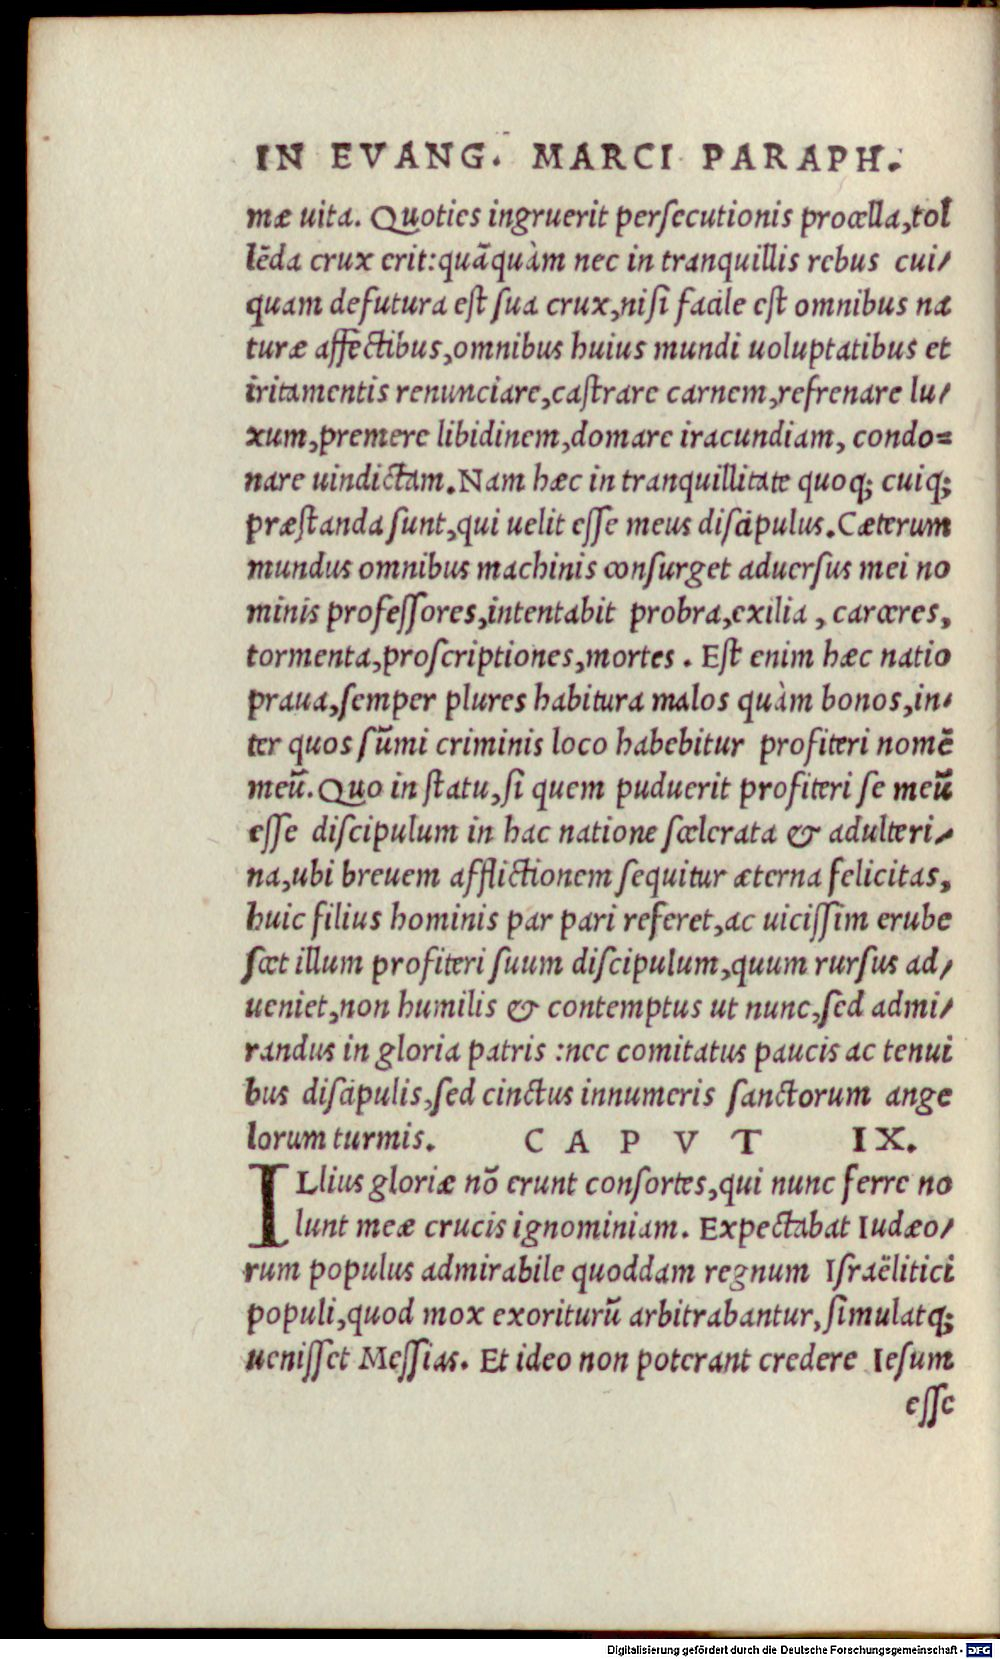 IN EVANG. MARCI PARAPH.
mæ uita. Quoties ingruerit perſecutionis procella, tol
lẽda crux erit: quãquàm nec in tranquillis rebus cui/
quam defutura eſt ſua crux, niſi facile eſt omnibus na
turæ affectibus, omnibus huius mundi uoluptatibus et
iritamentis renunciare, caſtrare carnem, refrenare lu/
xum, premere libidinem, domare iracundiam, condo=
nare uindictam. Nam hæc in tranquillitate quoq; cuiq;
præſtanda ſunt, qui uelit eſſe meus diſcipulus. Cæterum
mundus omnibus machinis conſurget aduerſus mei no
minis profeſſores, intentabit probra, exilia, carceres,
tormenta, proſcriptiones, mortes. Eſt enim hæc natio
praua, ſemper plures habitura malos quàm bonos, in/
ter quos ſũmi criminis loco habebitur profiteri nomẽ
meũ. Quo in ſtatu, ſi quem puduerit profiteri ſe meũ
eſſe diſcipulum in hac natione ſcelerata & adulteri/
na, ubi breuem afflictionem ſequitur æterna felicitas,
huic filius hominis par pari referet, ac uiciſſim erube
ſcet illum profiteri ſuum diſcipulum, quum rurſus ad/
ueniet, non humilis & contemptus ut nunc, ſed admi/
randus in gloria patris: nec comitatus paucis ac tenui
bus diſcipulis, ſed cinctus innumeris ſanctorum ange
lorum turmis. CAPVT IX.
ILlius gloriæ nõ erunt conſortes, qui nunc ferre no
lunt meæ crucis ignominiam. Expectabat Iudæo/
rum populus admirabile quoddam regnum Iſraëlitici
populi, quod mox exoriturũ arbitrabantur, ſimulatq;
ueniſſet Meſſias. Et ideo non poterant credere Ieſum
eſſe
Digitalisierung gefördert durch die Deutsche Forschungsgemeinschaft - DFG